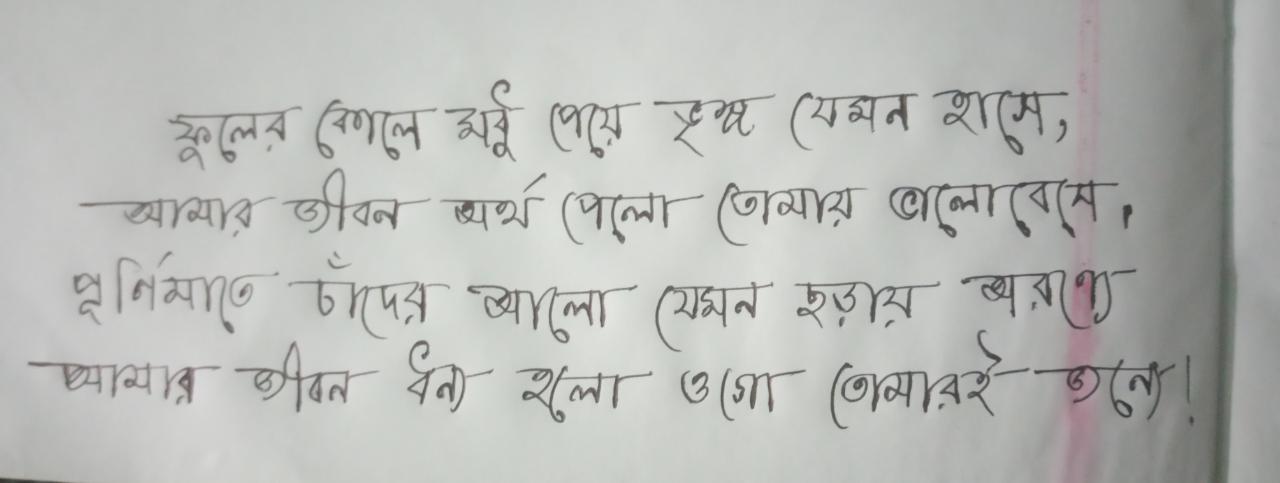 ফুলের কোলে মধু পেয়ে ভৃঙ্গ যেমন হাসে,
আমার জীবন অর্থ পেলো তোমায় ভালোবেসে,
পূর্নিমাতে চাঁদের আলো যেমন ছড়ায় অরণ্যে
আমার জীবন ধন্য হলো ওগো তোমারই জন্যে!